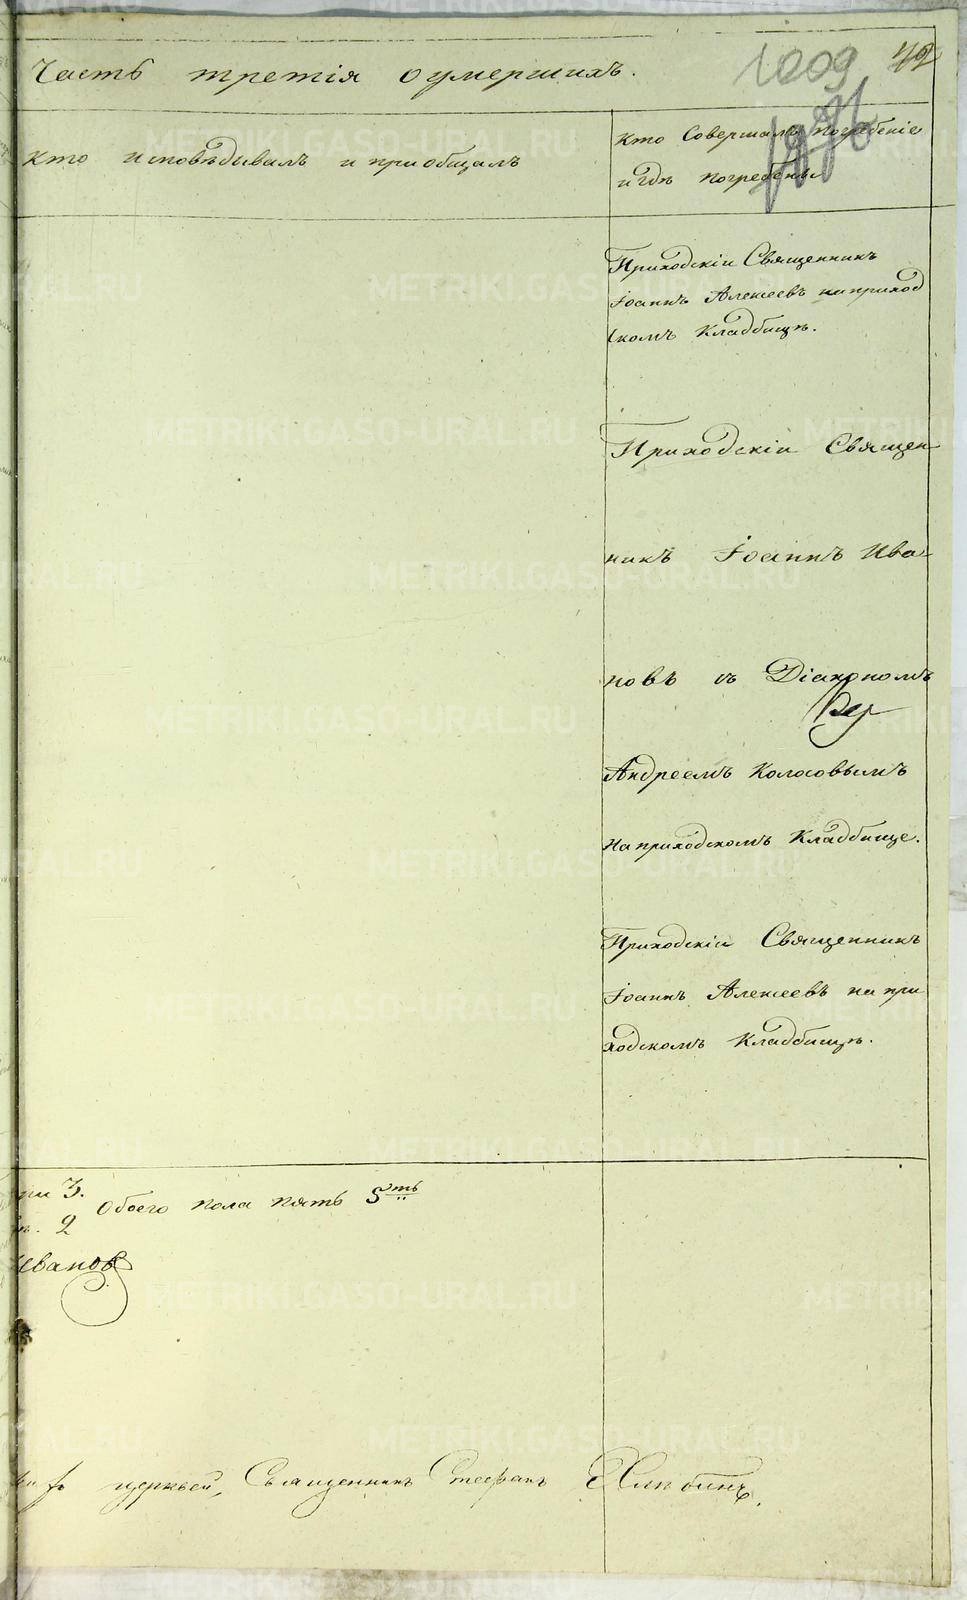 Часть третія о умершихъ.
1009 42
Кто исповѣдывалъ и пріобщалъ
Кто Совершалъ погребеніе
и гдѣ погребены
Приходскій Священникъ
Іоаннъ Алексѣевъ на приход
скомъ Кладбищѣ.
Приходскій Священ
никъ Іоаннъ Ива-
новъ съ Діакономъ
Андреемъ Колосовымъ
На приходскомъ Кладбище.
Приходскій Священникъ
Іоаннъ Алексеевъ на при
ходскомъ Кладбищѣ.
3.
Обоего пола пять 5ть
2
Ивановъ
церквей, Священникъ Стефанъ Хлѣбинъ.
METRIKI.GASO-URAL.RU